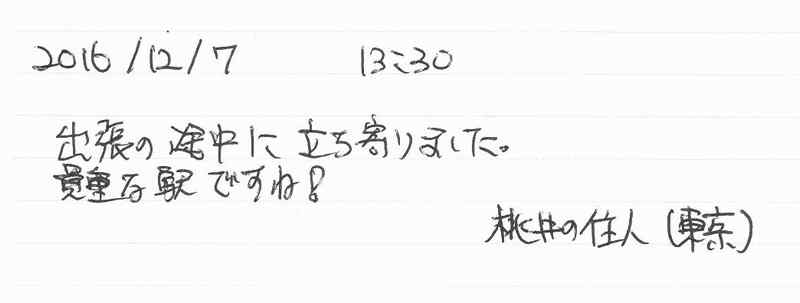 2016/12/7 13:30
出張の途中に立ち寄りました。
貴重な駅ですね!
桃井の住人(東京)